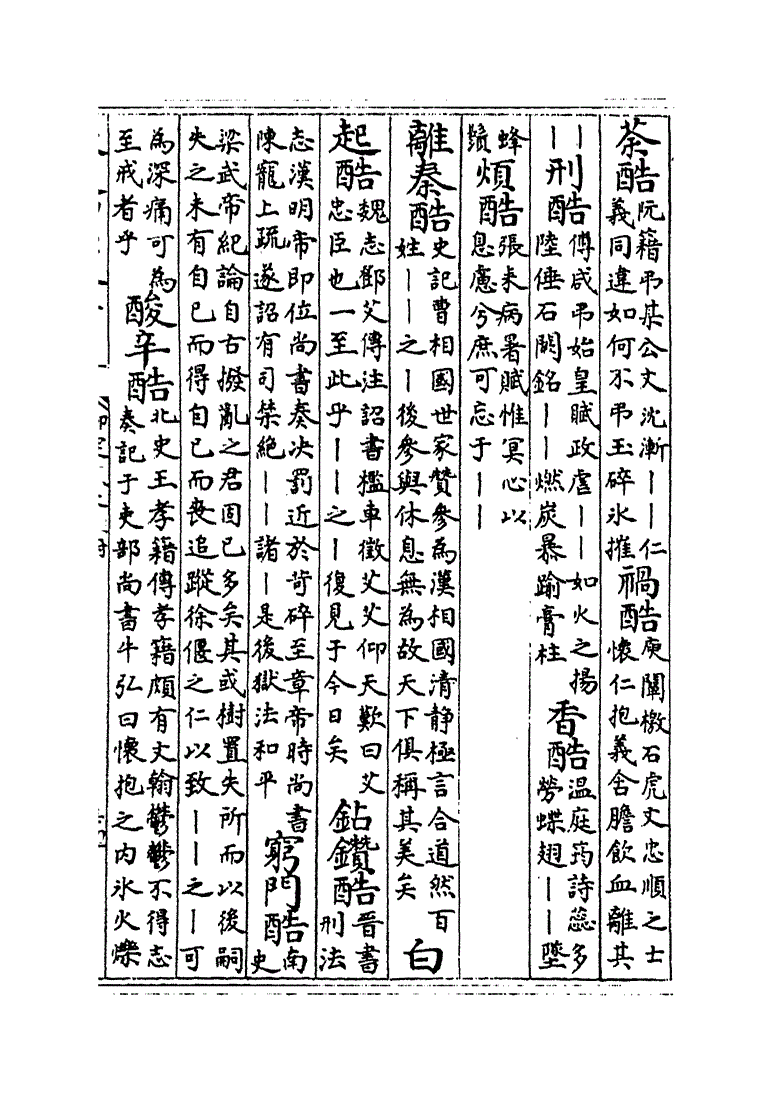 荼酷阮籍弔某公文沈漸——仁
義同違如何不弔玉碎氷摧
禍酷庾闡檄石虎文忠順之士
懷仁抱義含膽飲血離其
——刑酷傅咸弔始皇賦政虐——如火之揚
陸倕石闕銘——燃炭暴踰膏柱
香酷温庭筠詩蕊多
勞蝶翅——墜
蜂
鬚
煩酷張耒病暑賦惟冥心以
息慮兮庶可忘于——
離秦酷史記曹相國世家贊參為漢相國清静極言合道然百
姓——之—後參與休息無為故天下俱稱其美矣
白
起酷魏志鄧艾傳注詔書檻車徵艾艾仰天歎曰艾
忠臣也一至此乎——之—復見于今日矣
鉆鑽酷晉書
刑法
志漢明帝即位尚書奏决罰近於苛碎至章帝時尚書
陳寵上疏遂詔有司禁絶——諸—是後獄法和平
窮門酷南
史
梁武帝紀論自古撥亂之君固已多矣其或樹置失所而以後嗣
失之未有自已而得自已而喪追蹤徐偃之仁以致——之—可
為深痛可為
至戒者乎
酸辛酷北史王孝籍傳孝籍頗有文翰鬱鬱不得志
奏記于吏部尚書牛弘曰懷抱之内氷火爍